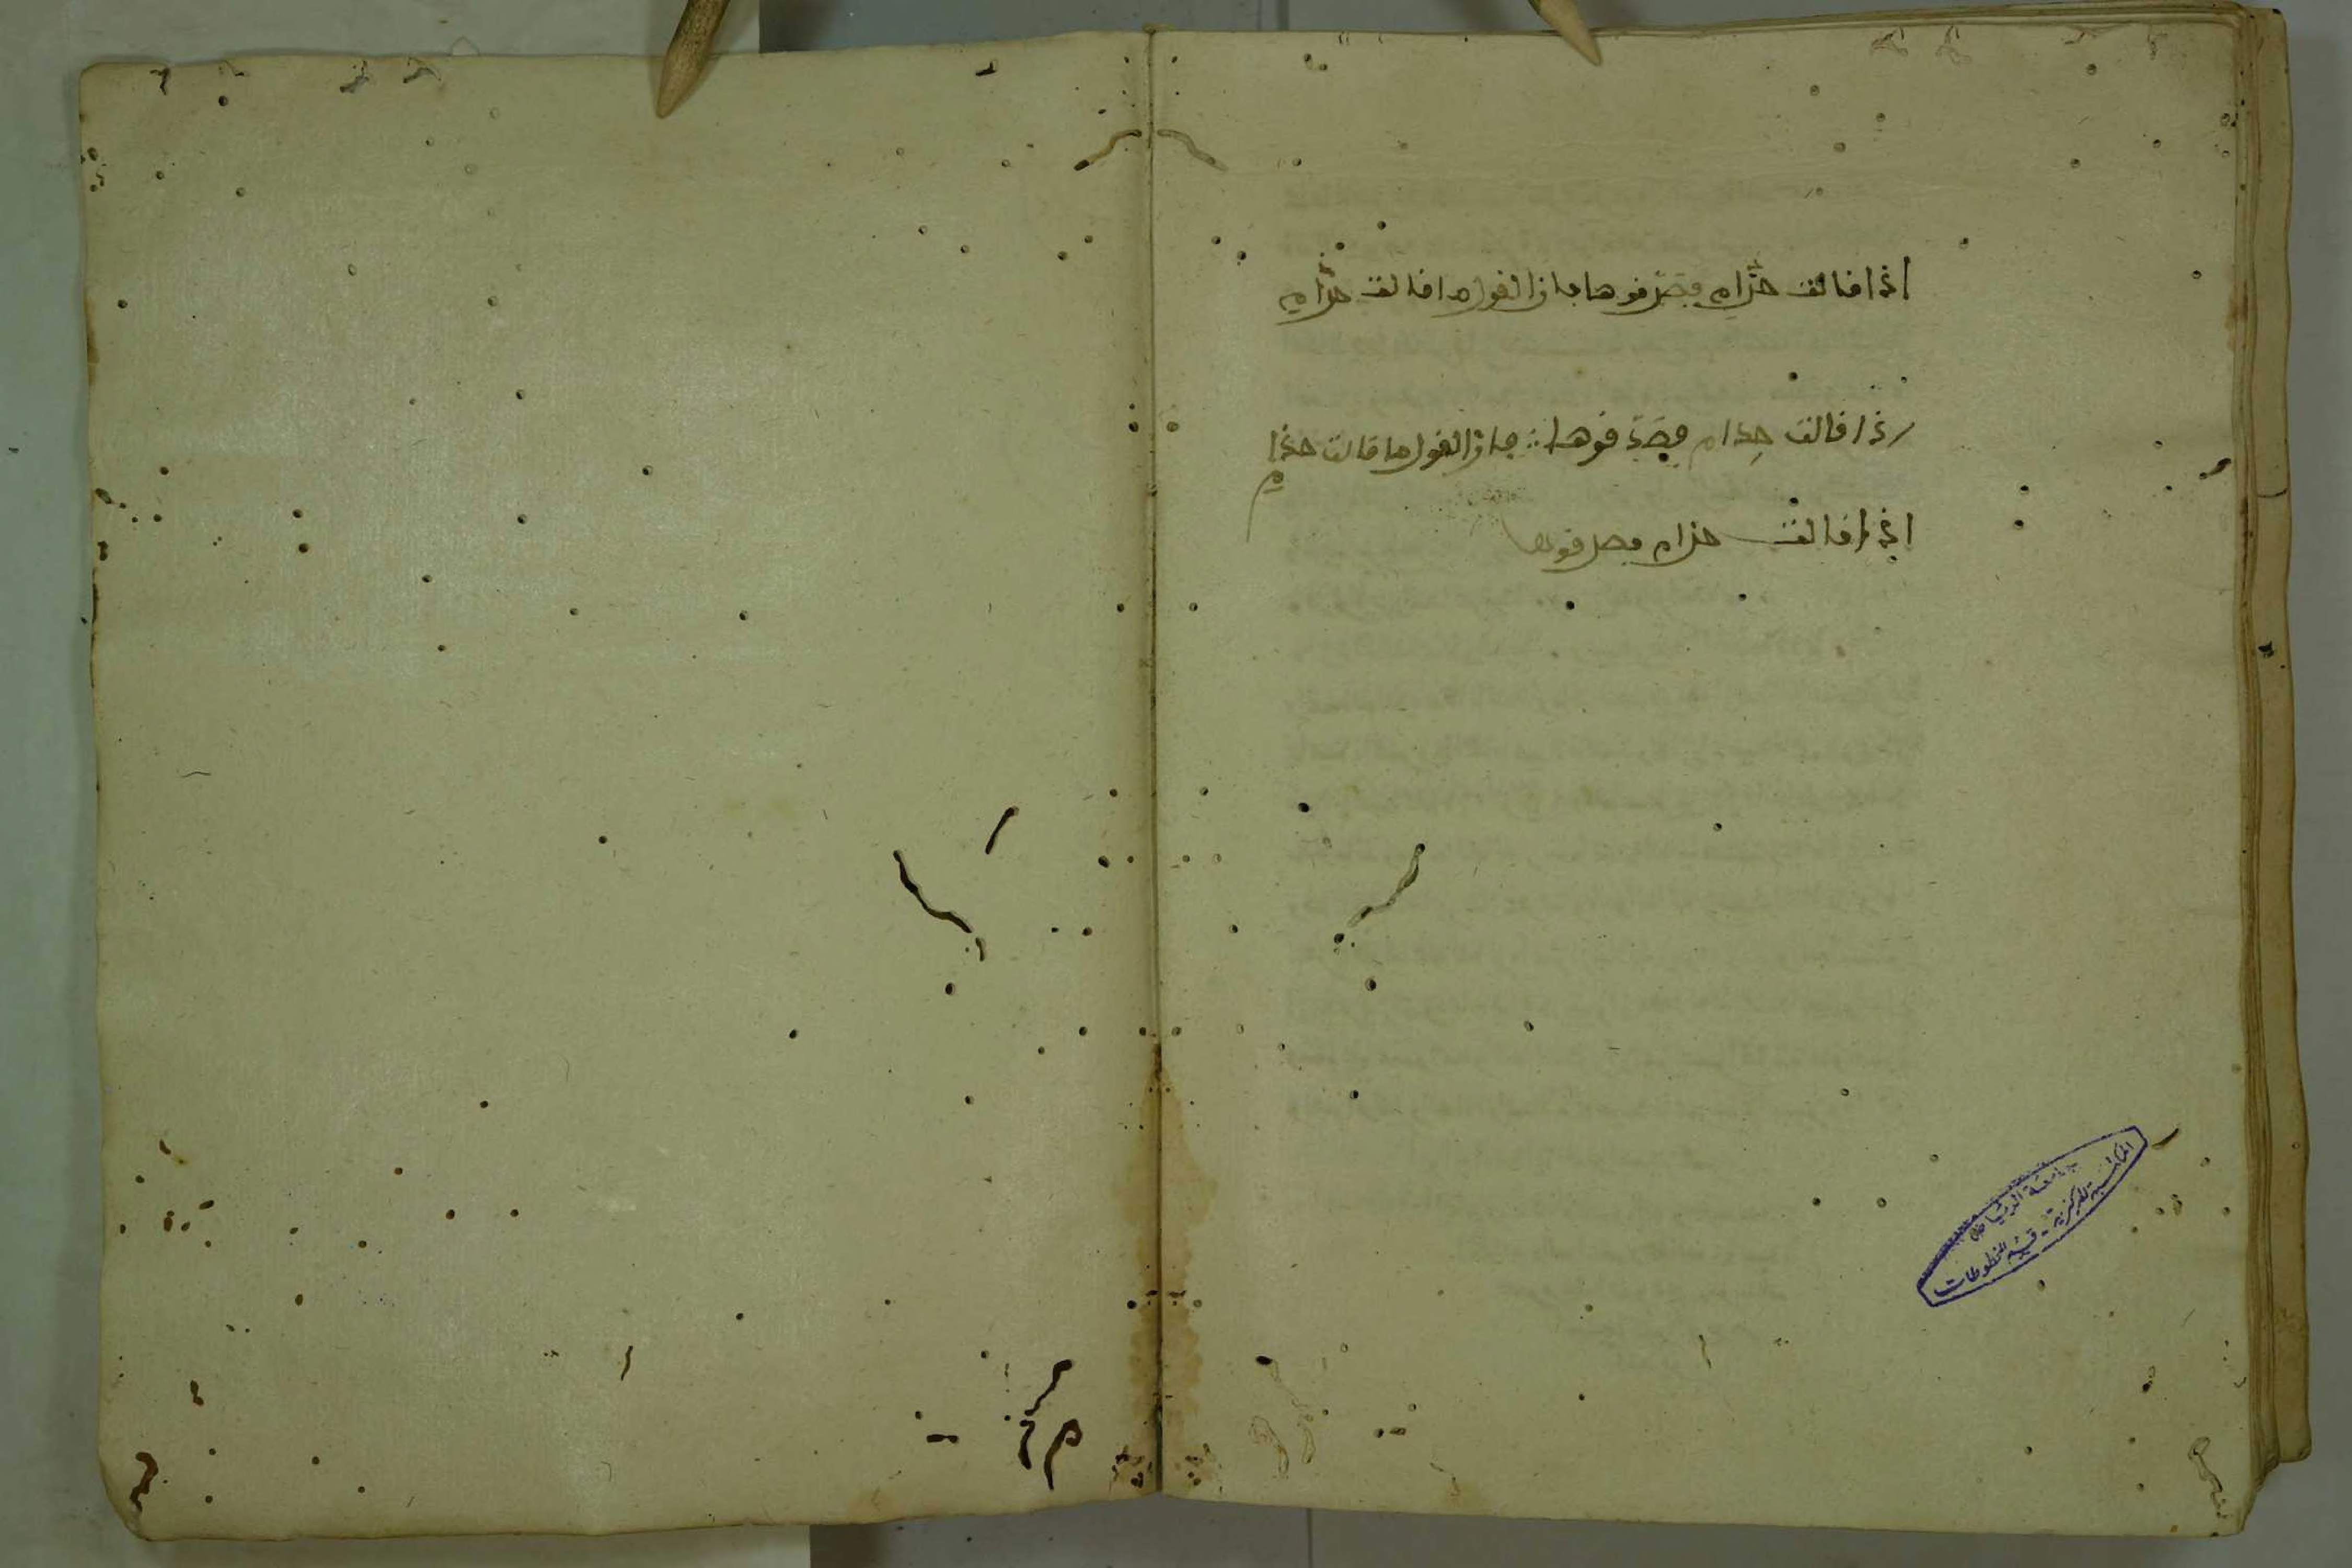 اذا قالت حذام فصدقوها فان القول ما قالت حذام
اذا قالت حذام فصدقوها فان القول ما قالت حذام
اذا قالت حذام فصدقوها
جامعة الرياض
المكتبة المركزية - قسم المخطوطات